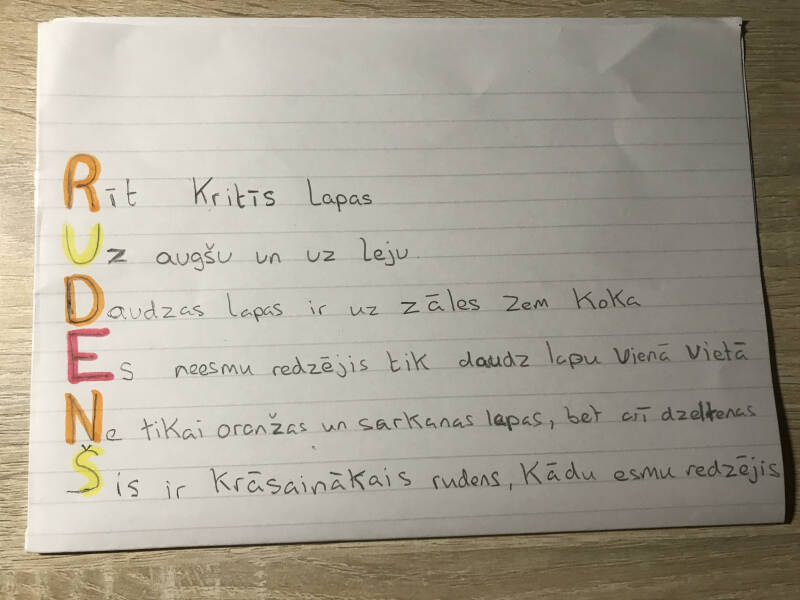 Rīt Kritīs lapas
Uz augšu un uz leju.
Daudzas lapas ir uz zāles zem koka
Es neesmu redzējis tik daudz lapu vienā vietā
Ne tikai oranžas un sarkanas lapas, bet arī dzeltenas
Šis ir krāsainākais rudens, Kādu esmu redzējis